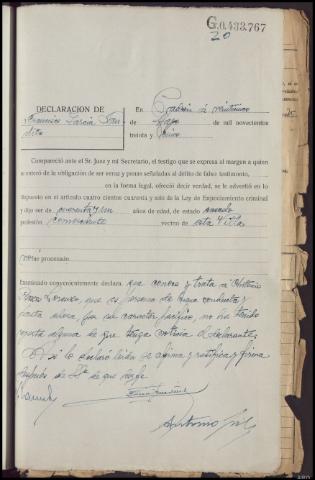 G.0.433.767
20
DECLARACION DE
Francisco García San
En Padrón a veintiuno
de Mayo de mil novecientos
treinta y cinco
Compareció ante el Sr. Juez y mi Secretario, el testigo que se expresa al margen a quien
se enteró de la obligación de ser veraz y penas señaladas al delito de falso testimonio,
en la forma legal, ofreció decir verdad, se le advertió en lo
dispuesto en el artículo cuatro cientos cuarenta y seis de la Ley de Enjuiciamiento criminal
y dijo ser de cuarenta y un años de edad, de estado casado
profesión comerciante vecino de esta Villa
procesado.
Examinado convenientemente declara: que conoce y trata a Antonio
que es persona de buena conducta y
por su caracter pacífico, no ha tenido
alguna de que tenga noticia el declarante.
leída se afirma y ratifica y firma
después de S.Sª de que doy fe
Antonio